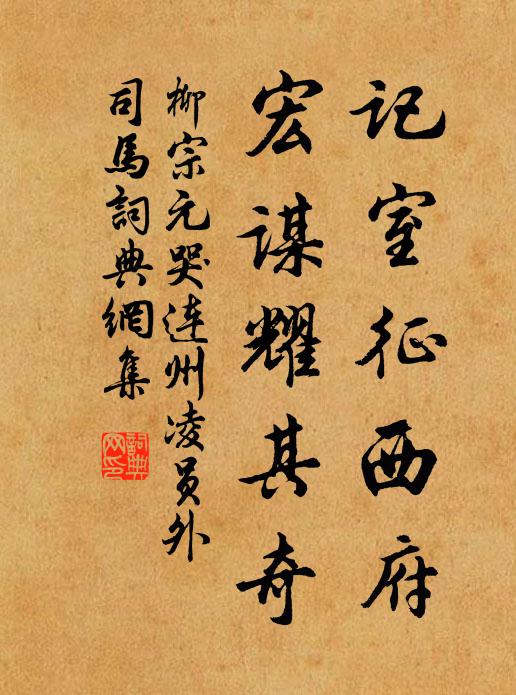 记室征西府
宏谋耀其奇
柳宗元哭连州凌员外
司馬詞典網集
詞典
网印